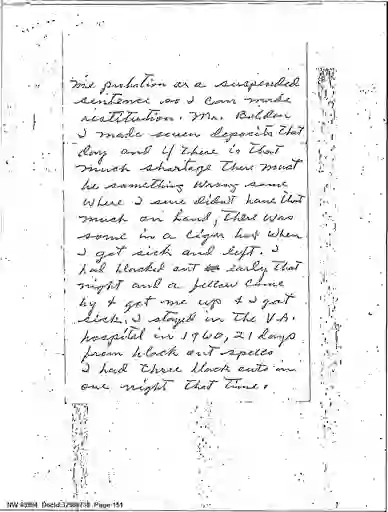 me probation or a suspended
sentence so I can make
restitution. Mr. Belden
I made seven deposits that
day and if there is that
much shortage there must
be something wrong some
where I sure didn't have that
much on hand, there was
some in a cigar box when
I got sick and left. I
had blacked out early that
night and a fellow came
by & got me up & I got
sick. I stayed in the V.A.
hospital in 1960, 21 days
from black out spells
I had three black outs on
one night that time.
Page 151